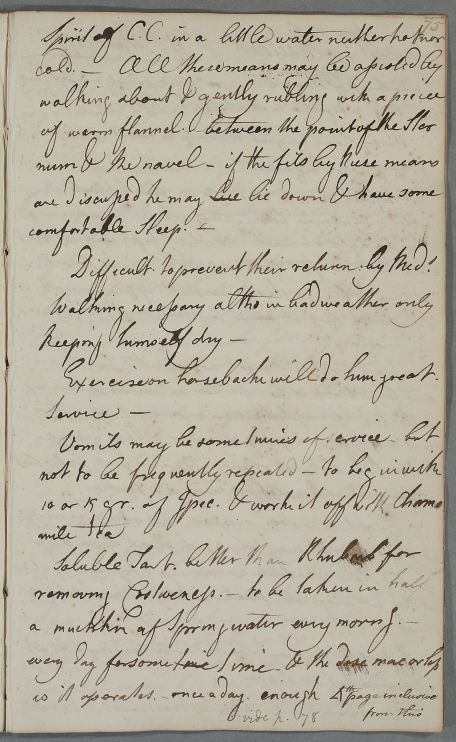 75
Spirit of C.C. in a little water neither hot nor
cold. — All these means may be assisted by
walking about & gently rubbing with a piece
of warm flannel between the point of the Ster
num & the navel — if the fits by these means
are discussed he may lie down & have some
comfortable Sleep. —
Difficult to prevent their return by Med.s
Walking necessary altho in bad weather only
keeping himself dry —
Exercise on horseback will do him great
Service —
Vomits may be sometimes of service - but
not to be frequently repeated — to begin with
10 or 15 gr. of Ipec. & work it off with Chamo
mile tea
Soluble Tart. better than Rhubarb for
removing Costiveness. — to be taken in half
a mutchkin of Spring water every morng. —
every day for some time & the dose more or less
as it operates - once a day enough 4th page inclusive
from this
vide p. 78